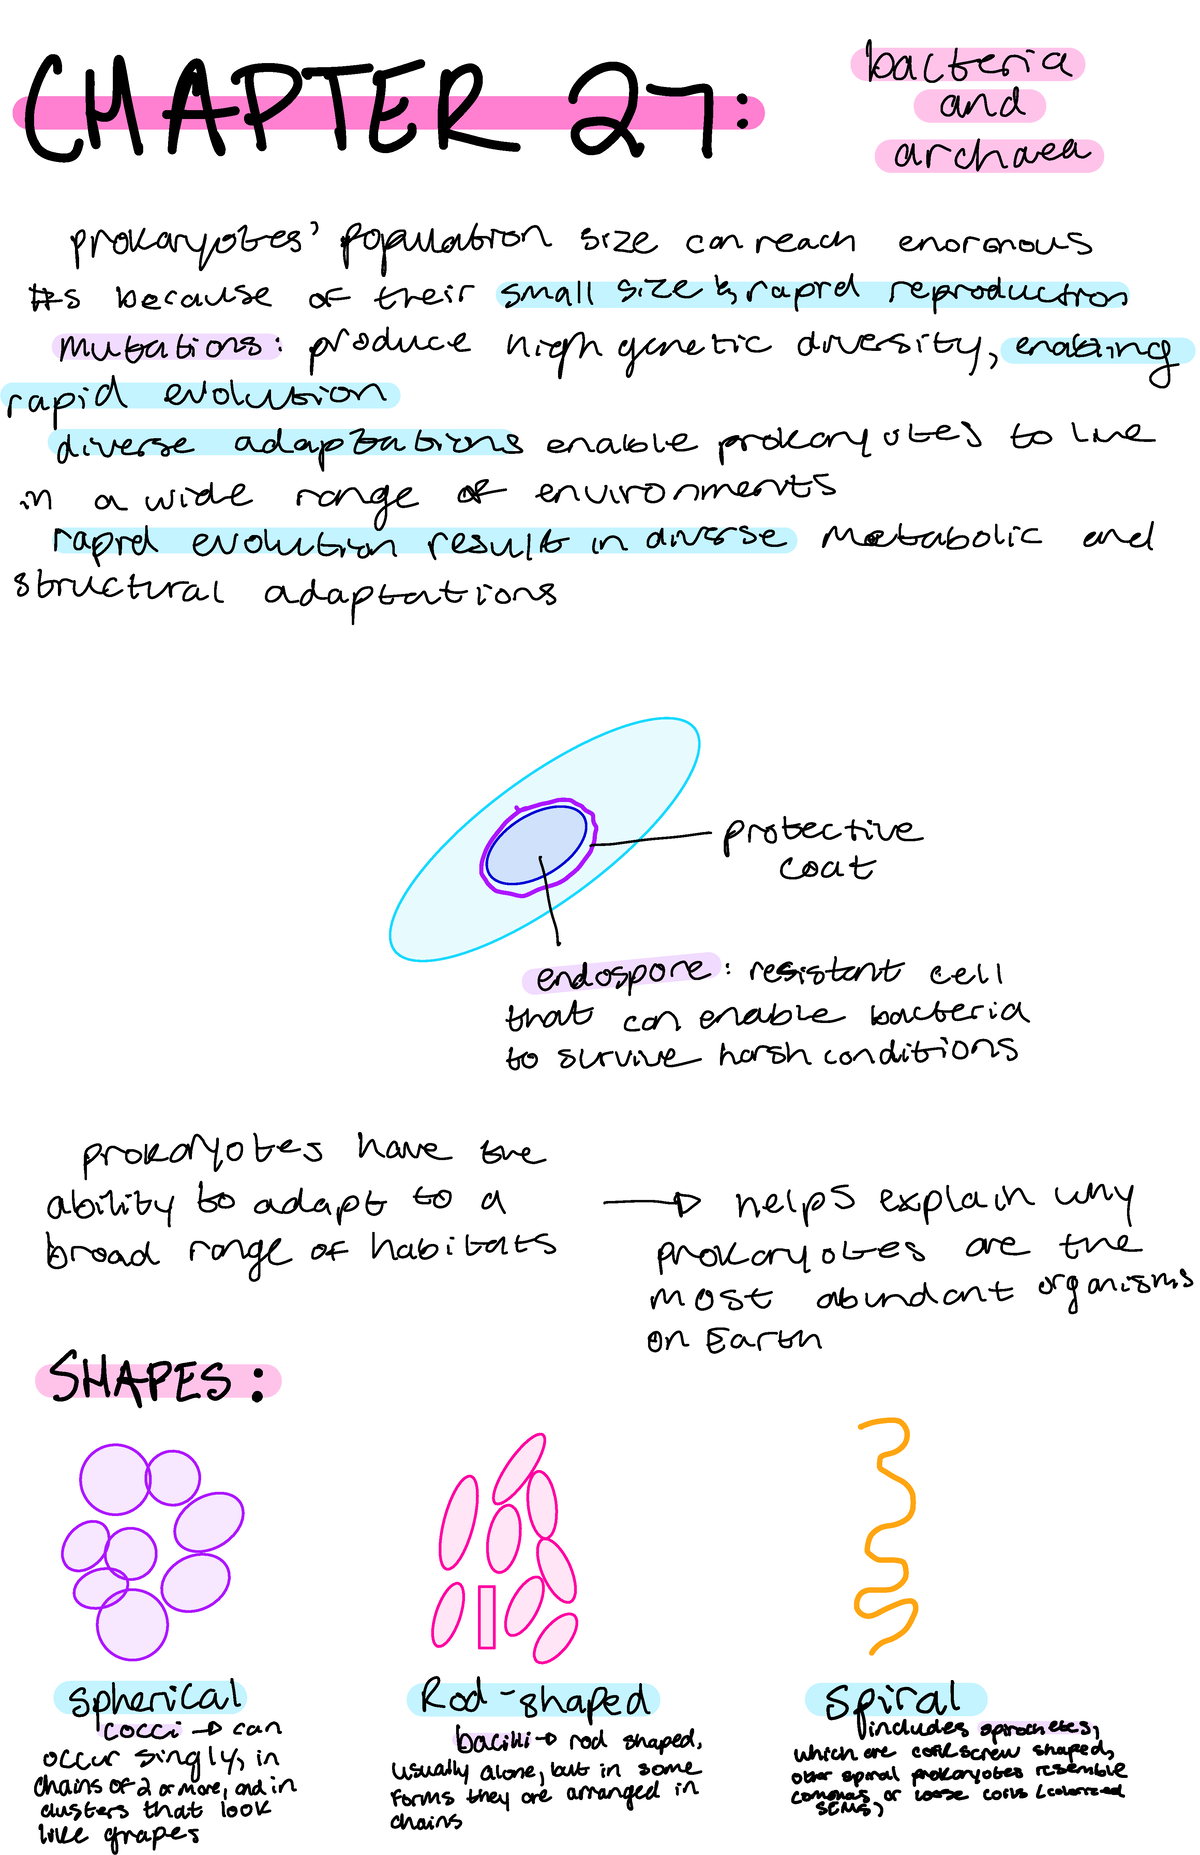 CHAPTER 27:
bacteria
and
archaea
prokaryotes' population size can reach enormous
#s because of their small size & rapid reproduction
mutations: produce high genetic diversity, enabling
rapid evolution
diverse adaptations enable prokaryotes to live
in a wide range of environments
rapid evolution result in diverse metabolic and
structural adaptations
protective
coat
endospore: resistant cell
that can enable bacteria
to survive harsh conditions
prokaryotes have the
ability to adapt to a
broad range of habitats
→ helps explain why
prokaryotes are the
most abundant organisms
on Earth
SHAPES:
spherical
cocci → can
occur singly, in
chains of 2 or more, and in
clusters that look
like grapes
Rod-shaped
bacilli → rod shaped,
usually alone, but in some
forms they are arranged in
chains
spiral
includes spirochetes,
which are corkscrew shaped,
other spiral prokaryotes resemble
commas or loose coils (colorized
SEMS)